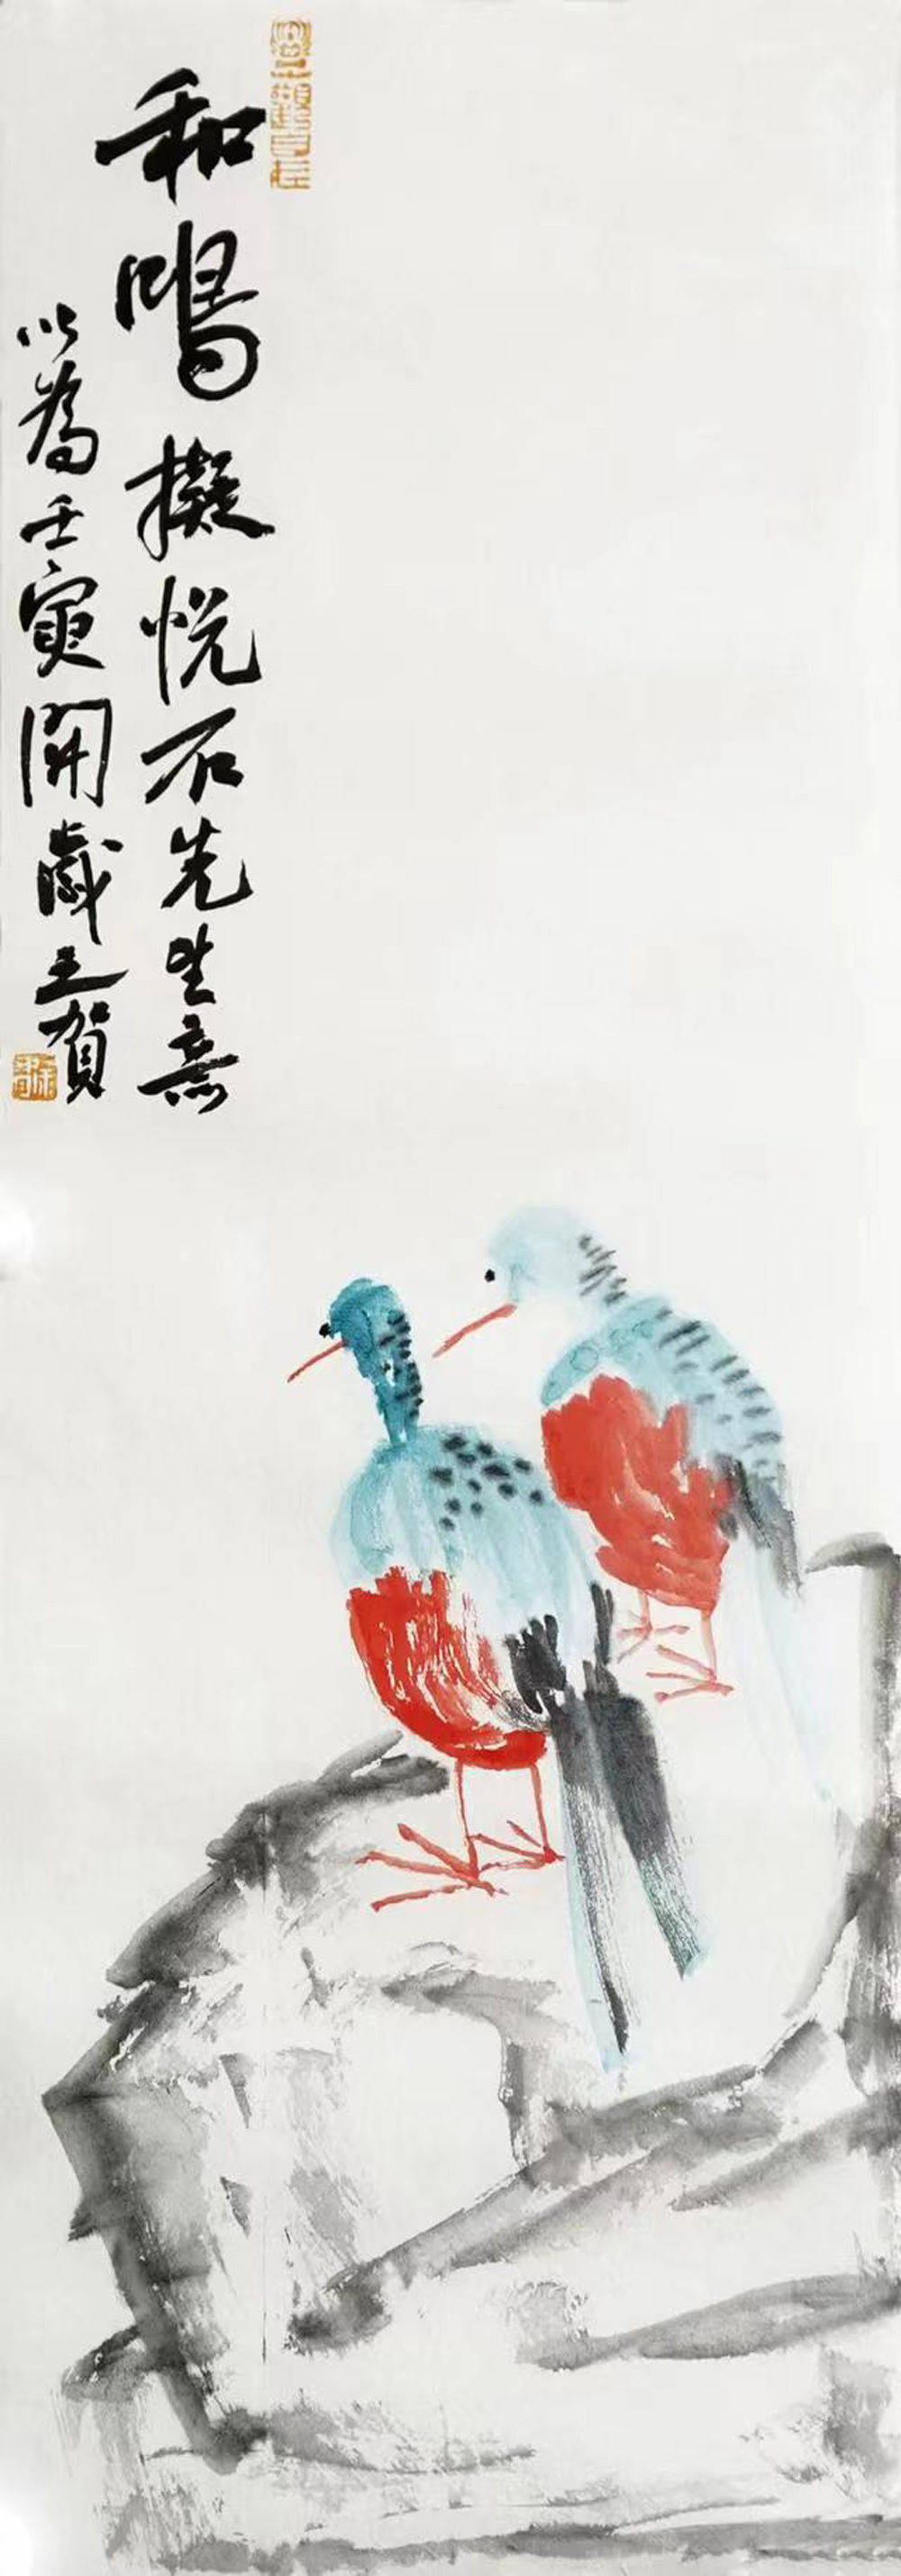 和鳴擬悦石先生意
以為壬寅開歲之賀